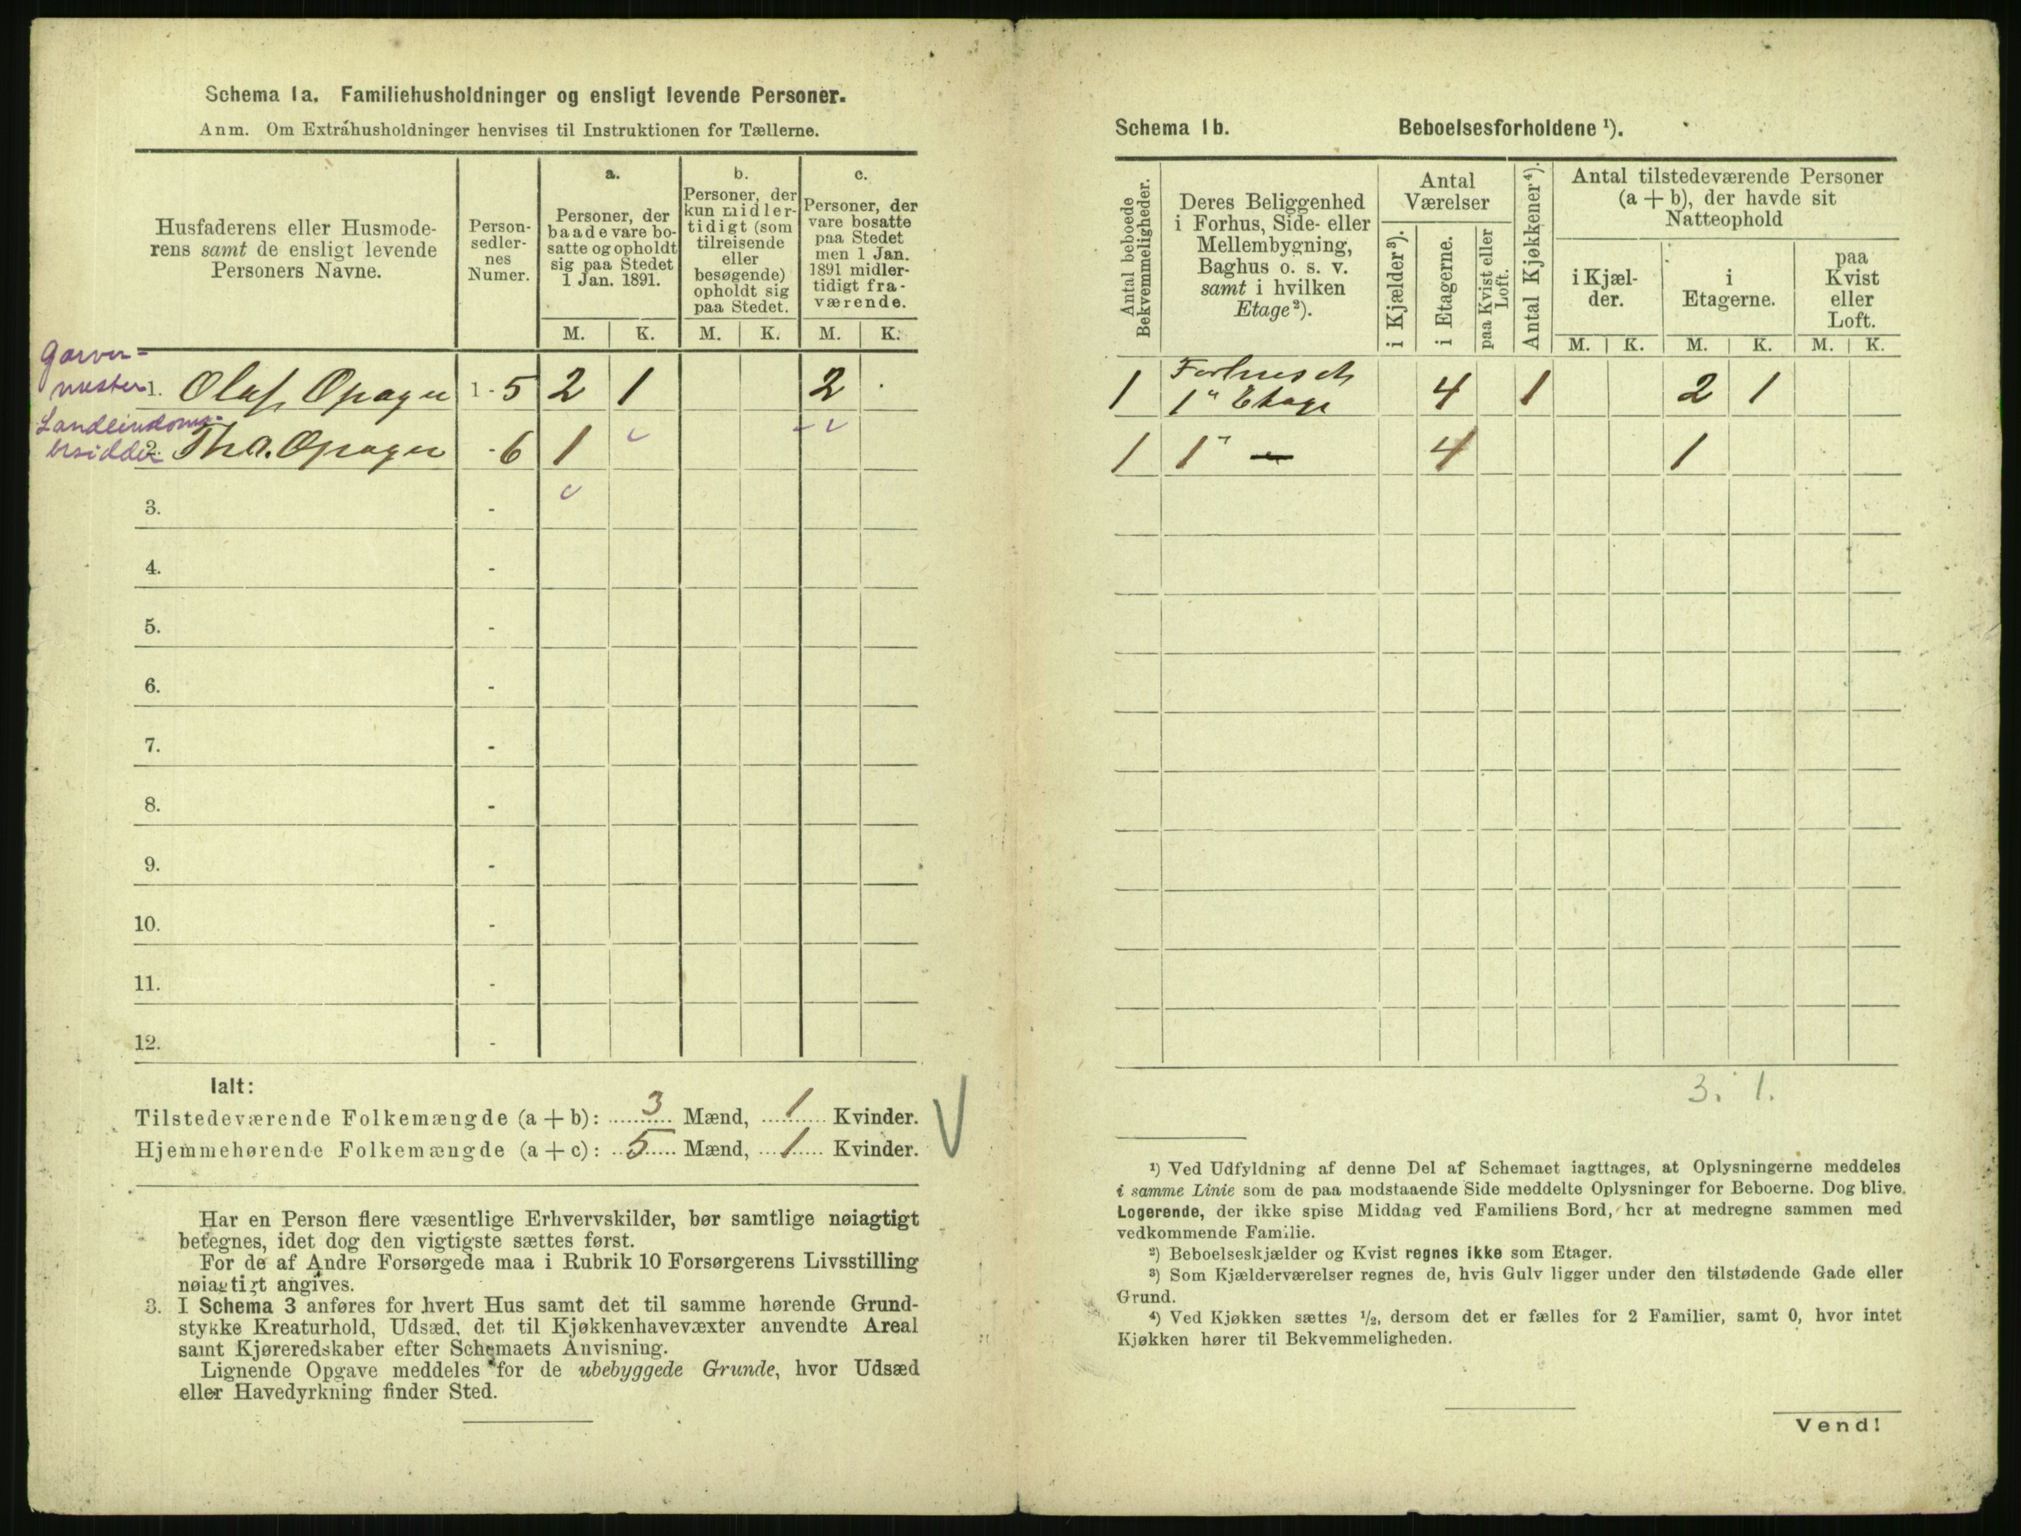 Schema 1a. Familiehusholdninger og ensligt levende Personer.
Anm. Om Extrahusholdninger henvises til Instruktionen for Tællerne.
Husfaderens eller Husmode-
rens samt de ensligt levende
Personers Navne.
Person-
sedler-
nes
Numer.
a.
Personer, der
baade vare bo-
satte og opholdt
sig paa Stedet
1 Jan. 1891.
b.
Personer, der
kun midler-
tidigt (som
tilreisende
eller
besøgende)
opholdt sig
paa Stedet.
c.
Personer, der
vare bosatte
paa Stedet
men 1 Jan.
1891 midler-
tidigt fra-
værende.
M. K. M. K. M. K.
Garver-
mester 1. Olaf Opager 1 - 5 2 1 2
Landeiendoms-
besidder 2. Tha. Opager - 6 1
3. -
4. -
5. -
6. -
7. -
8. -
9. -
10. -
11. -
12. -
Ialt:
Tilstedeværende Folkemængde (a + b): 3 Mænd, 1 Kvinder.
Hjemmehørende Folkemængde (a + c): 5 Mænd, 1 Kvinder.
Har en Person flere væsentlige Erhvervskilder, bør samtlige nøiagtigt
betegnes, idet dog den vigtigste sættes først.
For de af Andre Forsørgede maa i Rubrik 10 Forsørgerens Livsstilling
nøiagtigt angives.
3. I Schema 3 anføres for hvert Hus samt det til samme hørende Grund-
stykke Kreaturhold, Udsæd, det til Kjøkkenhavevæxter anvendte Areal
samt Kjøreredskaber efter Schemaets Anvisning.
Lignende Opgave meddeles for de ubebyggede Grunde, hvor Udsæd
eller Havedyrkning finder Sted.
Schema 1b. Beboelsesforholdene ¹).
Antal beboede
Bekvemmeligheder.
Deres Beliggenhed
i Forhus, Side- eller
Mellembygning,
Baghus o. s. v.
samt i hvilken
Etage²).
Antal
Værelser
i Kjælder³).
i Etagerne.
paa Kvist eller
Loft.
Antal Kjøkkener⁴).
Antal tilstedeværende Personer
(a + b), der havde sit
Natteophold
i Kjæl-
der.
i
Etagerne.
paa
Kvist
eller
Loft.
M. K. M. K. M. K.
1 Forhuset
1" Etage 4 1 2 1
1 1" — 4 1
3. 1.
¹) Ved Udfyldning af denne Del af Schemaet iagttages, at Oplysningerne meddeles
i samme Linie som de paa modstaaende Side meddelte Oplysninger for Beboerne. Dog blive
Logerende, der ikke spise Middag ved Familiens Bord, her at medregne sammen med
vedkommende Familie.
²) Beboelseskjælder og Kvist regnes ikke som Etager.
³) Som Kjælderværelser regnes de, hvis Gulv ligger under den tilstødende Gade eller
Grund.
⁴) Ved Kjøkken sættes ½, dersom det er fælles for 2 Familier, samt 0, hvor intet
Kjøkken hører til Bekvemmeligheden.
Vend!